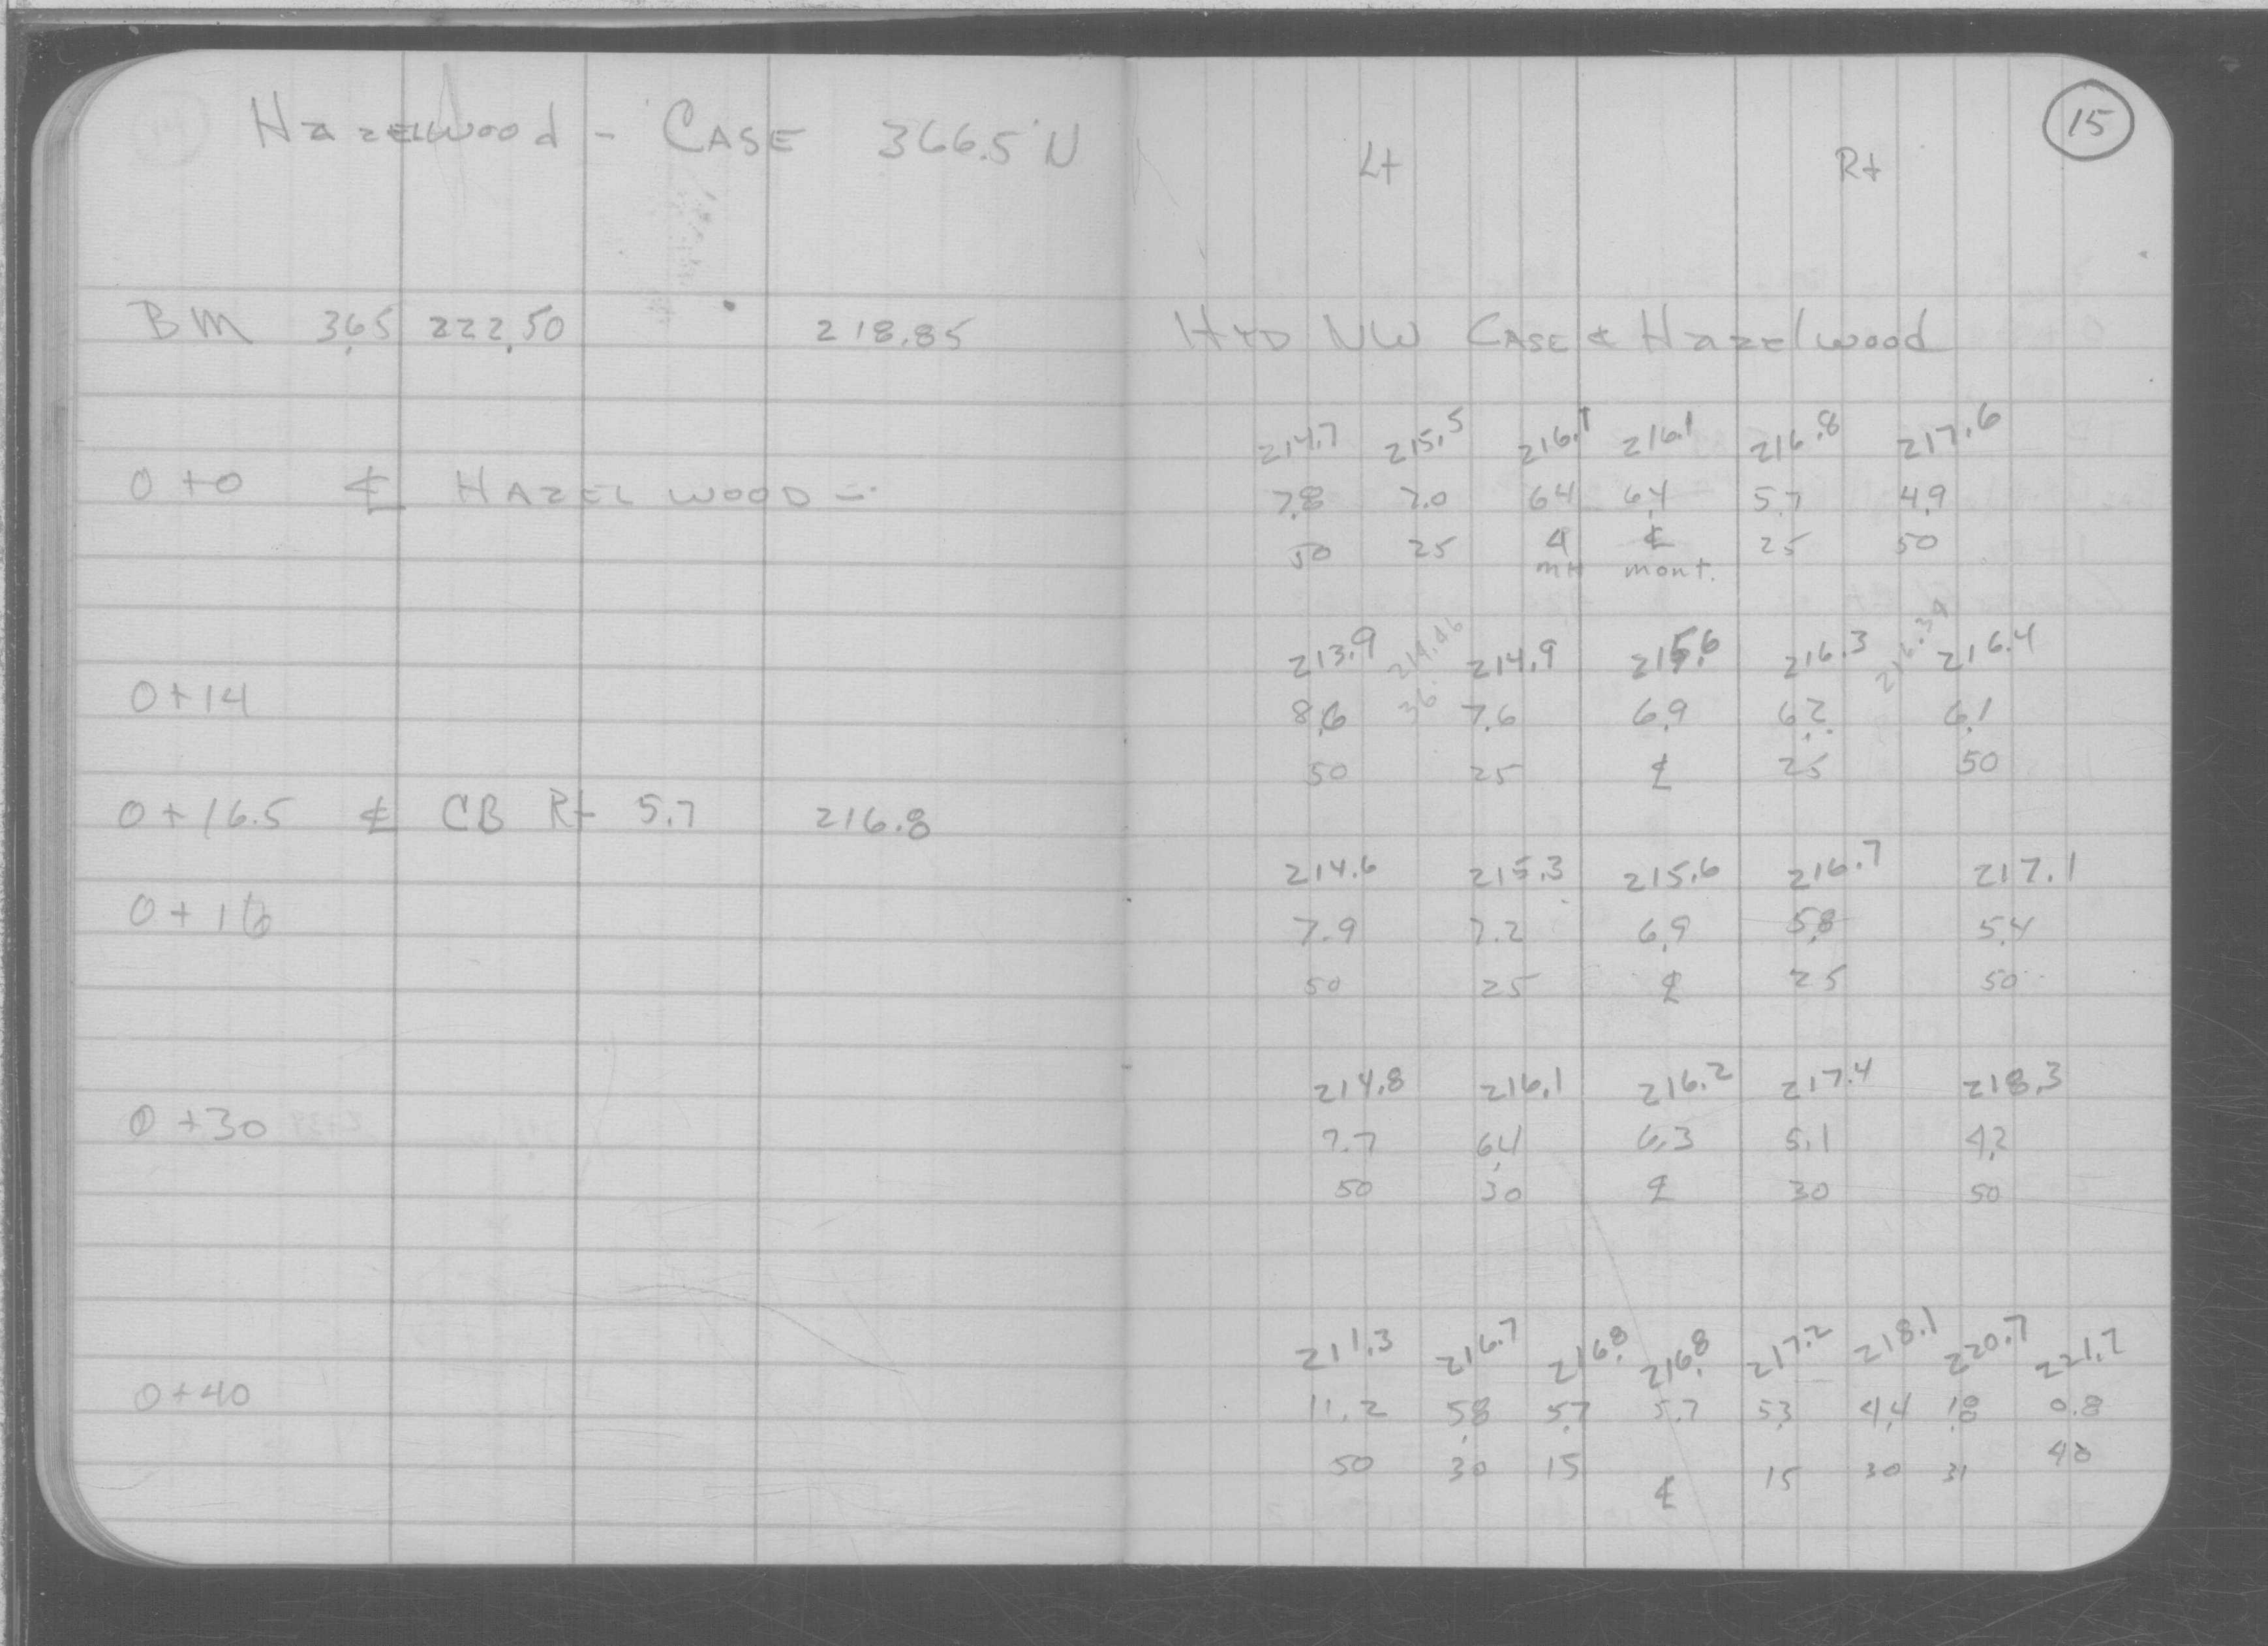 Hazelwood - Case 366.5' N
15
Lt Rt
BM 3.65 222.50 218.85 Hyd NW Case & Hazelwood
214.7 215.5 216.1 216.1 216.8 217.6
0+0 ℄ Hazelwood - 7.8 7.0 6.4 6.4 5.7 4.9
50 25 4 ℄ 25 50
MH mont.
213.9 214.46 214.9 215.6 216.3 216.34 216.4
0+14 8.6 36 7.6 6.9 6.2 6.1
50 25 ℄ 25 50
0+16.5 ℄ CB Rt 5.7 216.8
214.6 215.3 215.6 216.7 217.1
0+16 7.9 7.2 6.9 5.8 5.4
50 25 ℄ 25 50
214.8 216.1 216.2 217.4 218.3
0+30 7.7 6.4 6.3 5.1 4.2
50 30 ℄ 30 50
211.3 216.7 216.8 216.8 217.2 218.1 220.7 221.7
0+40 11.2 5.8 5.7 5.7 5.3 4.4 1.8 0.8
50 30 15 ℄ 15 30 31 40